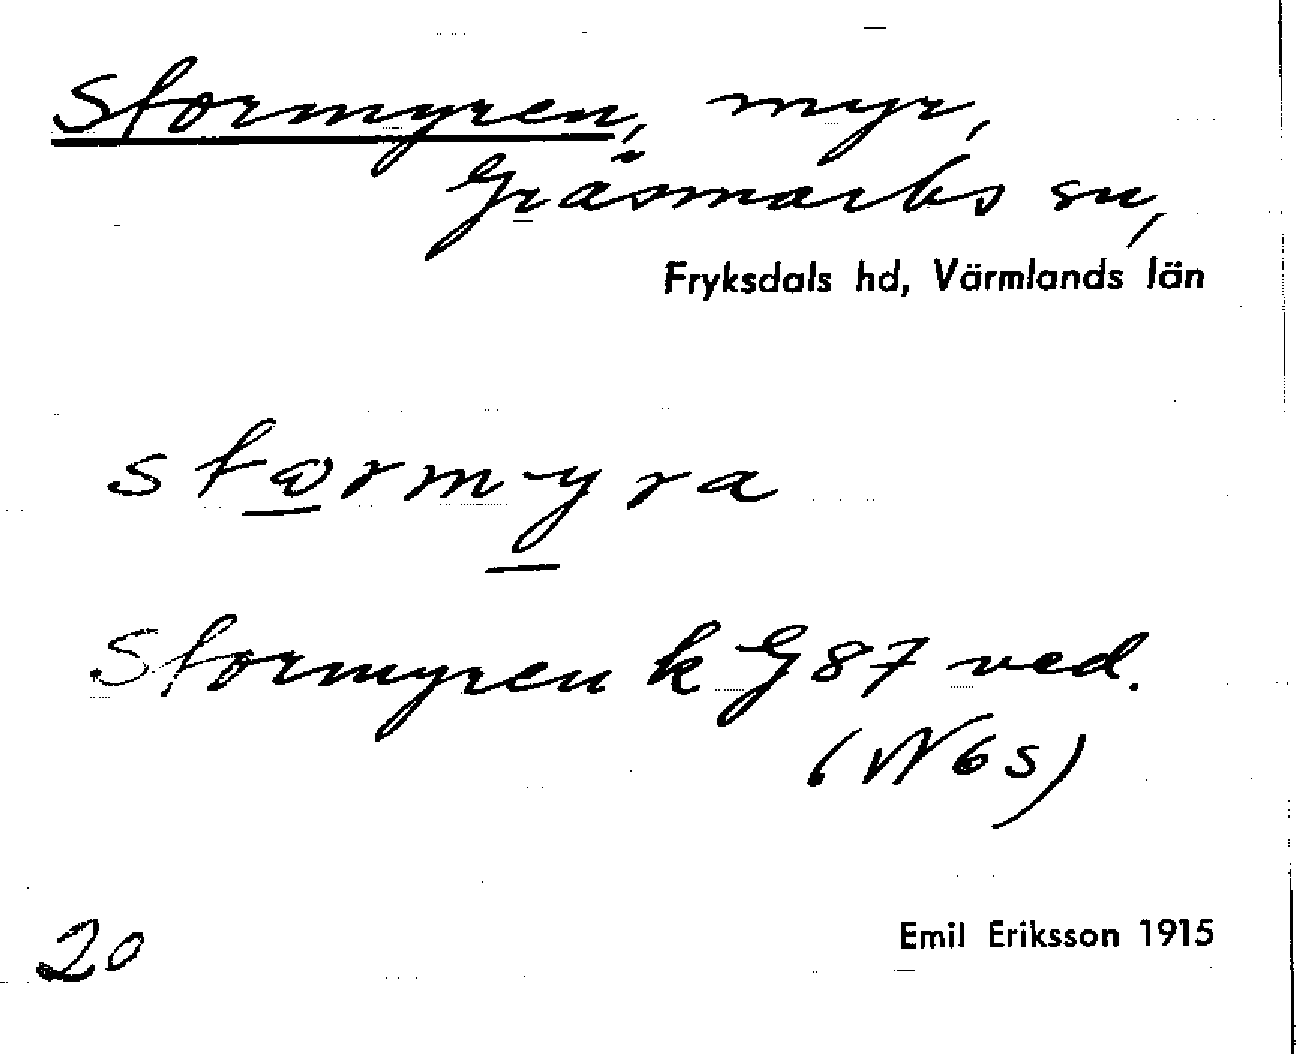 Stormyren, myr,
Gräsmarks sn,
Fryksdals hd, Värmlands län
stωrmyra
Stormyren k G 87 ved.
(W 6 s)
20
Emil Eriksson 1915